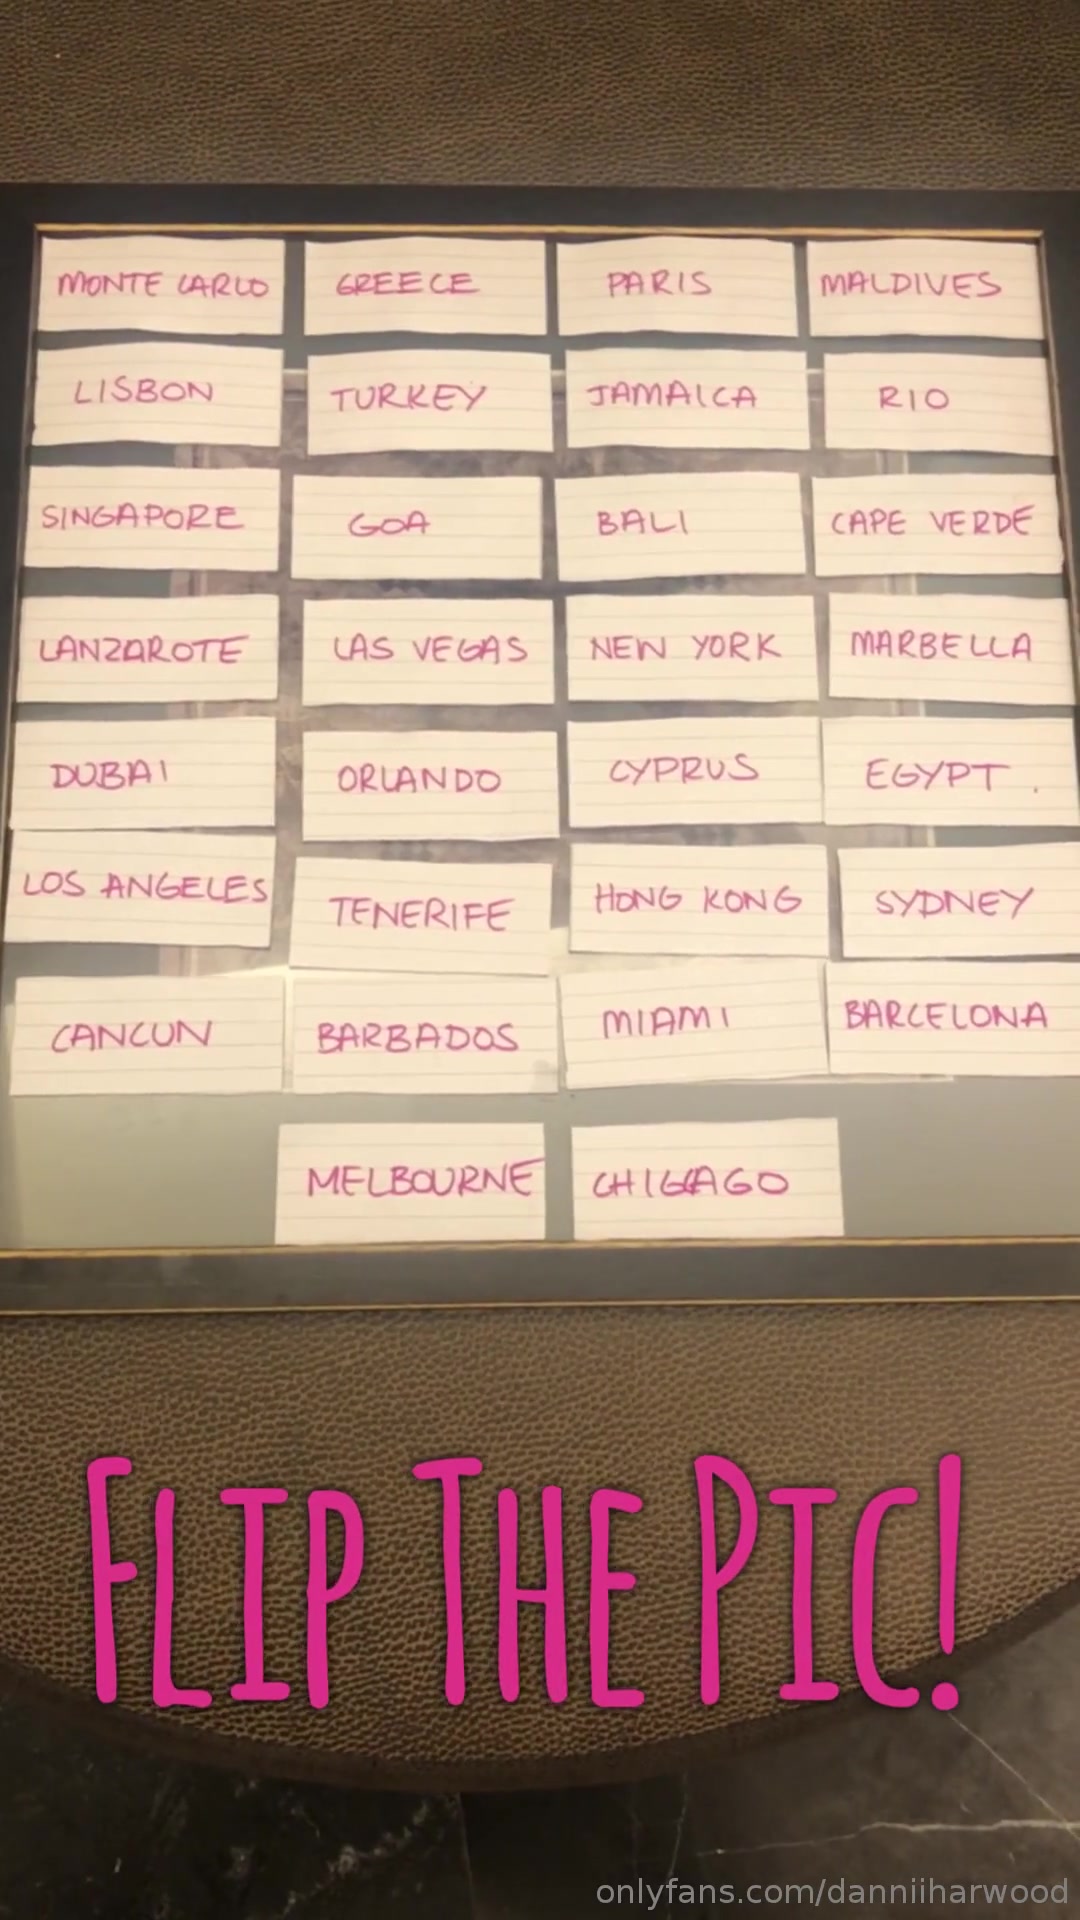 MONTE CARLO GREECE PARIS MALDIVES
LISBON TURKEY JAMAICA RIO
SINGAPORE GOA BALI CAPE VERDE
LANZAROTE LAS VEGAS NEW YORK MARBELLA
DUBAI ORLANDO CYPRUS EGYPT.
LOS ANGELES TENERIFE HONG KONG SYDNEY
CANCUN BARBADOS MIAMI BARCELONA
MELBOURNE CHICAGO
FLIP THE PIC!
onlyfans.com/danniiharwood